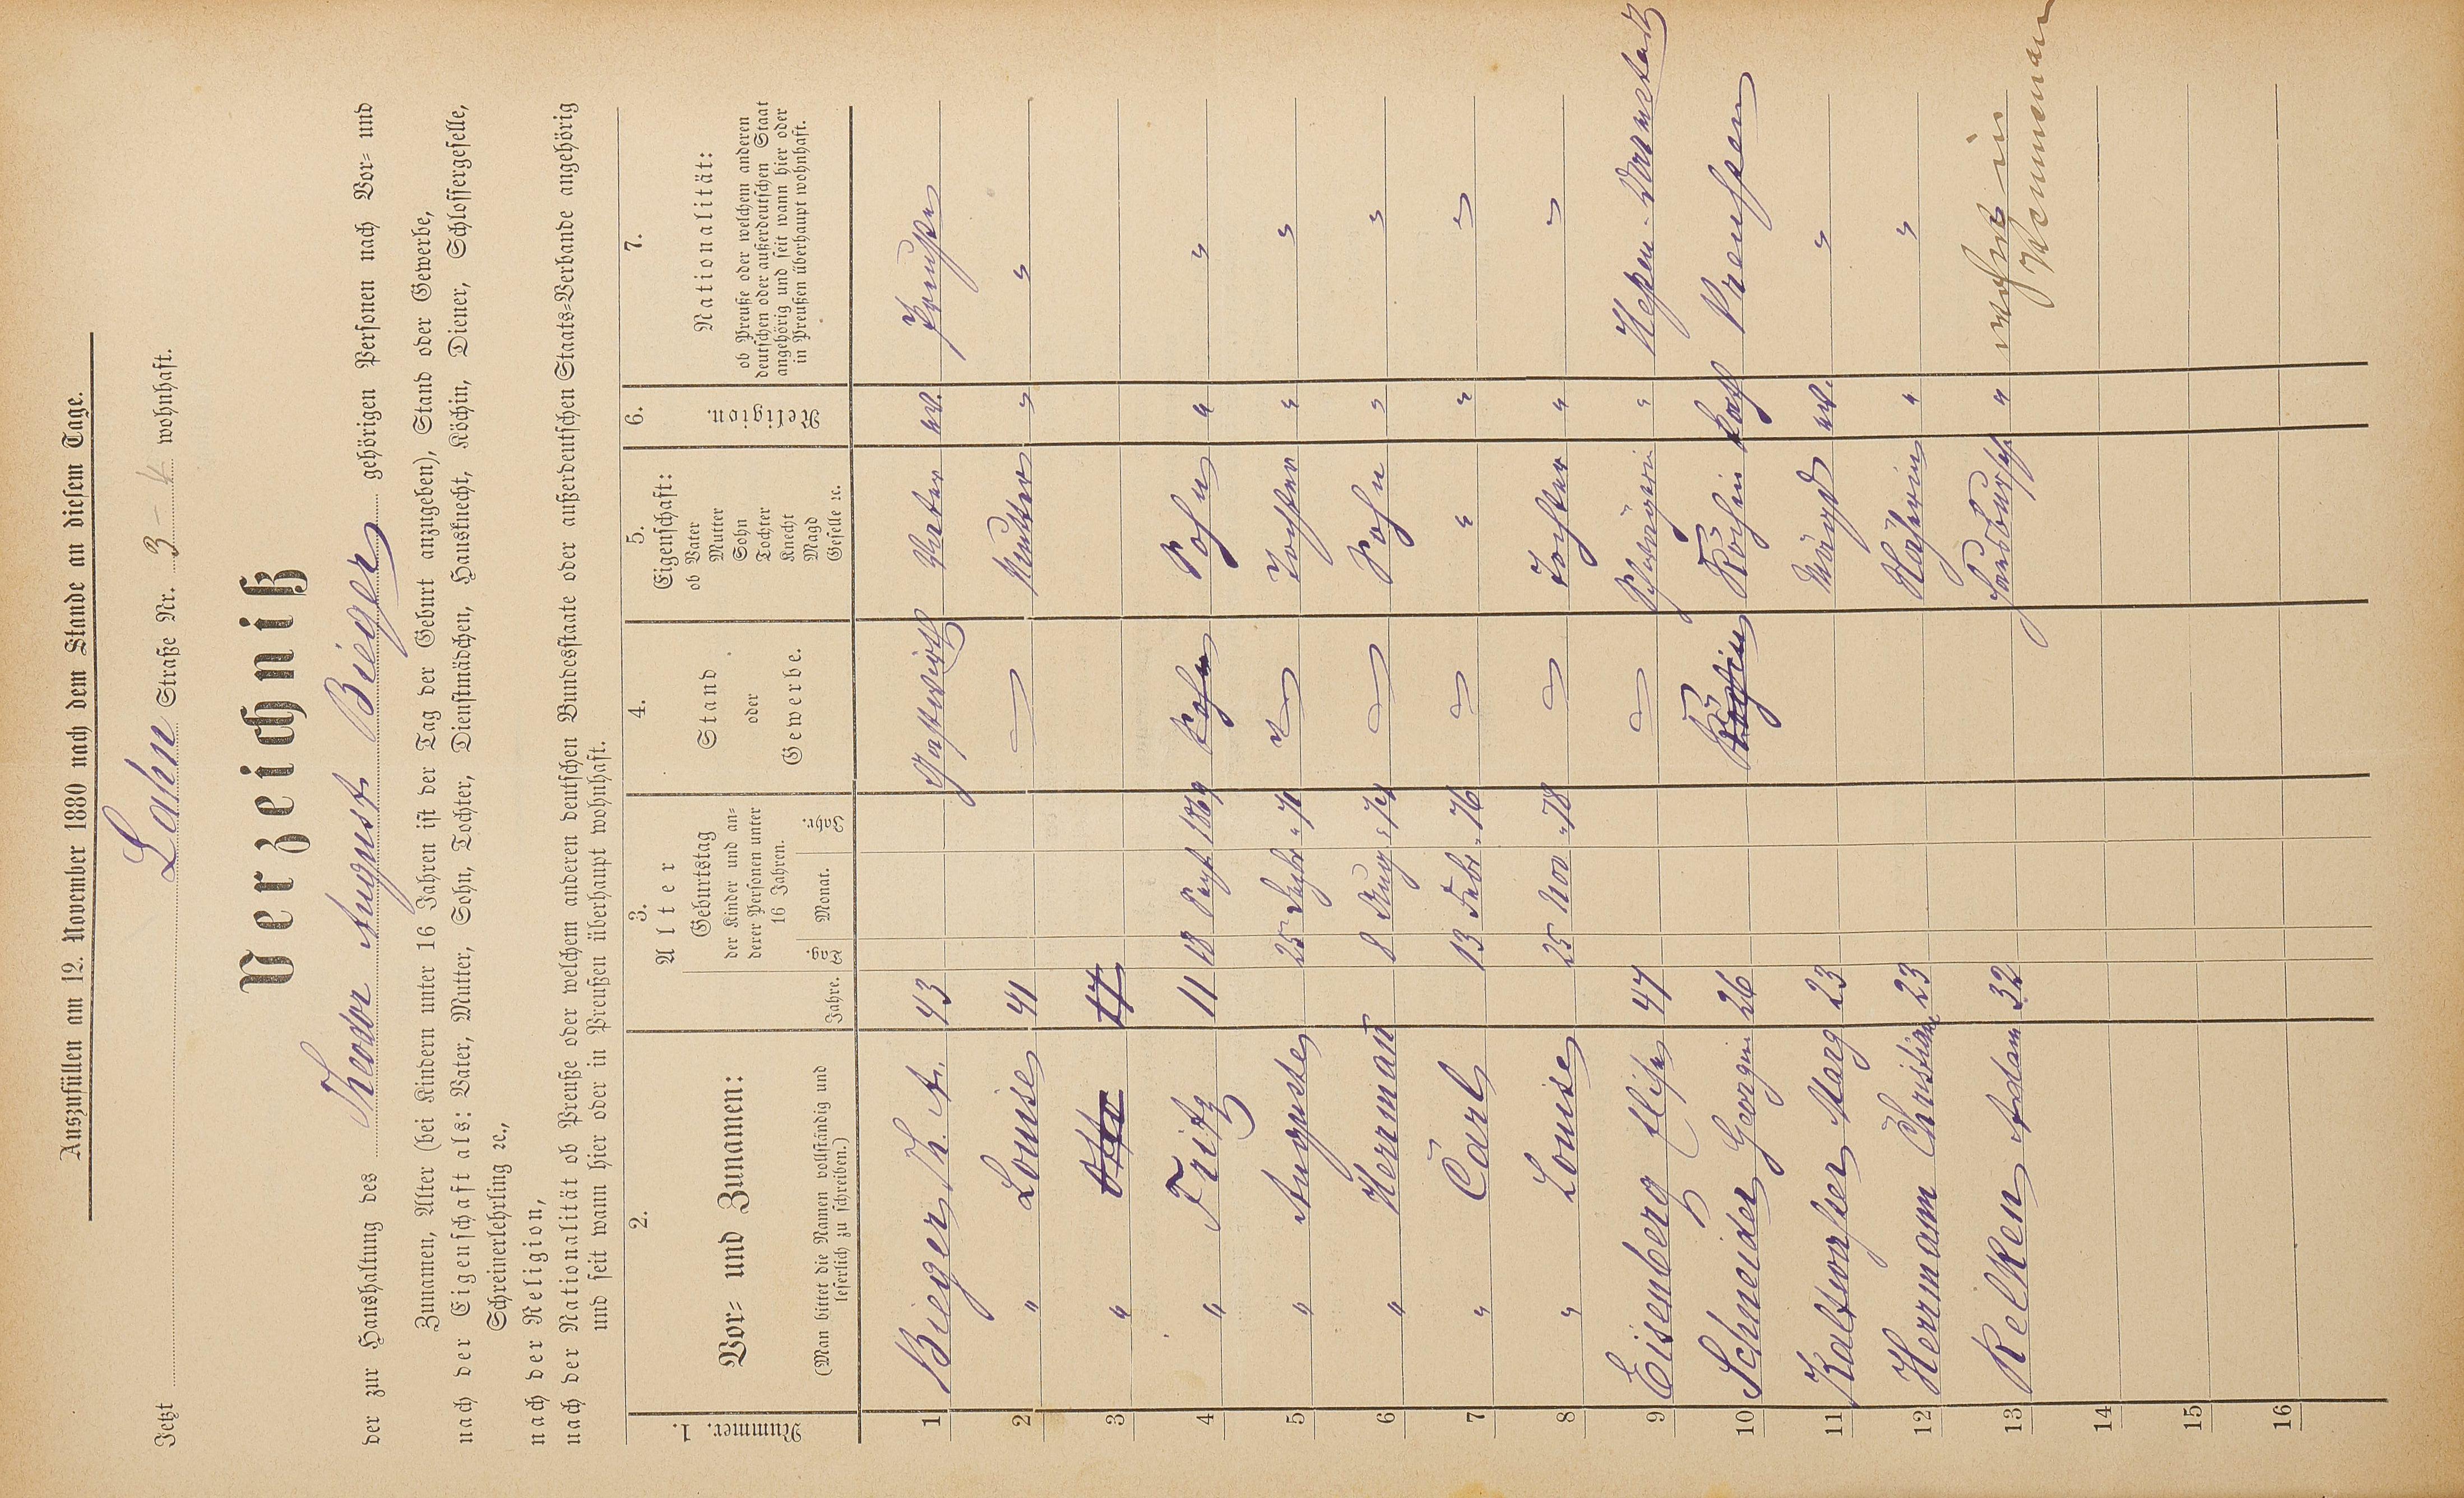 Auszufüllen am 12. November 1880 nach dem Stande an diesem Tage.
Jetzt Lahn Straße Nr. 3-4 wohnhaft.
Verzeichniß
der zur Haushaltung des Theodor August Bieger gehörigen Personen nach Vor- und
Zunamen, Alter (bei Kindern unter 16 Jahren ist der Tag der Geburt anzugeben), Stand oder Gewerbe,
nach der Eigenschaft als: Vater, Mutter, Sohn, Tochter, Dienstmädchen, Hausknecht, Köchin, Diener, Schlossergeselle,
Schreinerlehrling ꝛc.,
nach der Religion,
nach der Nationalität ob Preuße oder welchem anderen deutschen Bundesstaate oder außerdeutschen Staats-Verbande angehörig
und seit wann hier oder in Preußen überhaupt wohnhaft.
1. Nummer.
2. Vor- und Zunamen:
(Man bittet die Namen vollständig und
leserlich zu schreiben.)
3. Alter
Jahre.
Geburtstag
der Kinder und an-
derer Personen unter
16 Jahren.
Tag Monat. Jahr
4. Stand
oder
Gewerbe.
5. Eigenschaft:
ob Vater
Mutter
Sohn
Tochter
Knecht
Magd
Geselle ꝛc.
6. Religion.
7. Nationalität:
ob Preuße oder welchem anderen
deutschen oder außerdeutschen Staat
angehörig und seit wann hier oder
in Preußen überhaupt wohnhaft.
1 Bieger Th. A. 43 Gastwirth Vater ev. Preuße
2 " Louise 41 — Mutter " "
3 " Otto 17
4 " Fritz 11 18 Sept 1869 Sohn Sohn " "
5 " Auguste 25 " 71 — Tochter " "
6 " Herrmann 8 Aug " 74 — Sohn " "
7 " Carl 13 Febr " 76 — " " "
8 " Louise 25 Nov " 78 — Tochter " "
9 Eisenberg Elise 47 — Schwägerin " Heßen-Darmstadt
10 Schneider Georgine 26 Köchin Köchin kath Preußen
11 Kaltwasser Marg 23 Magd ev. "
12 Herrmann Christian 23 " "
13 Reilken Adam 32 Hausbursche " wohnt in
14
15
16